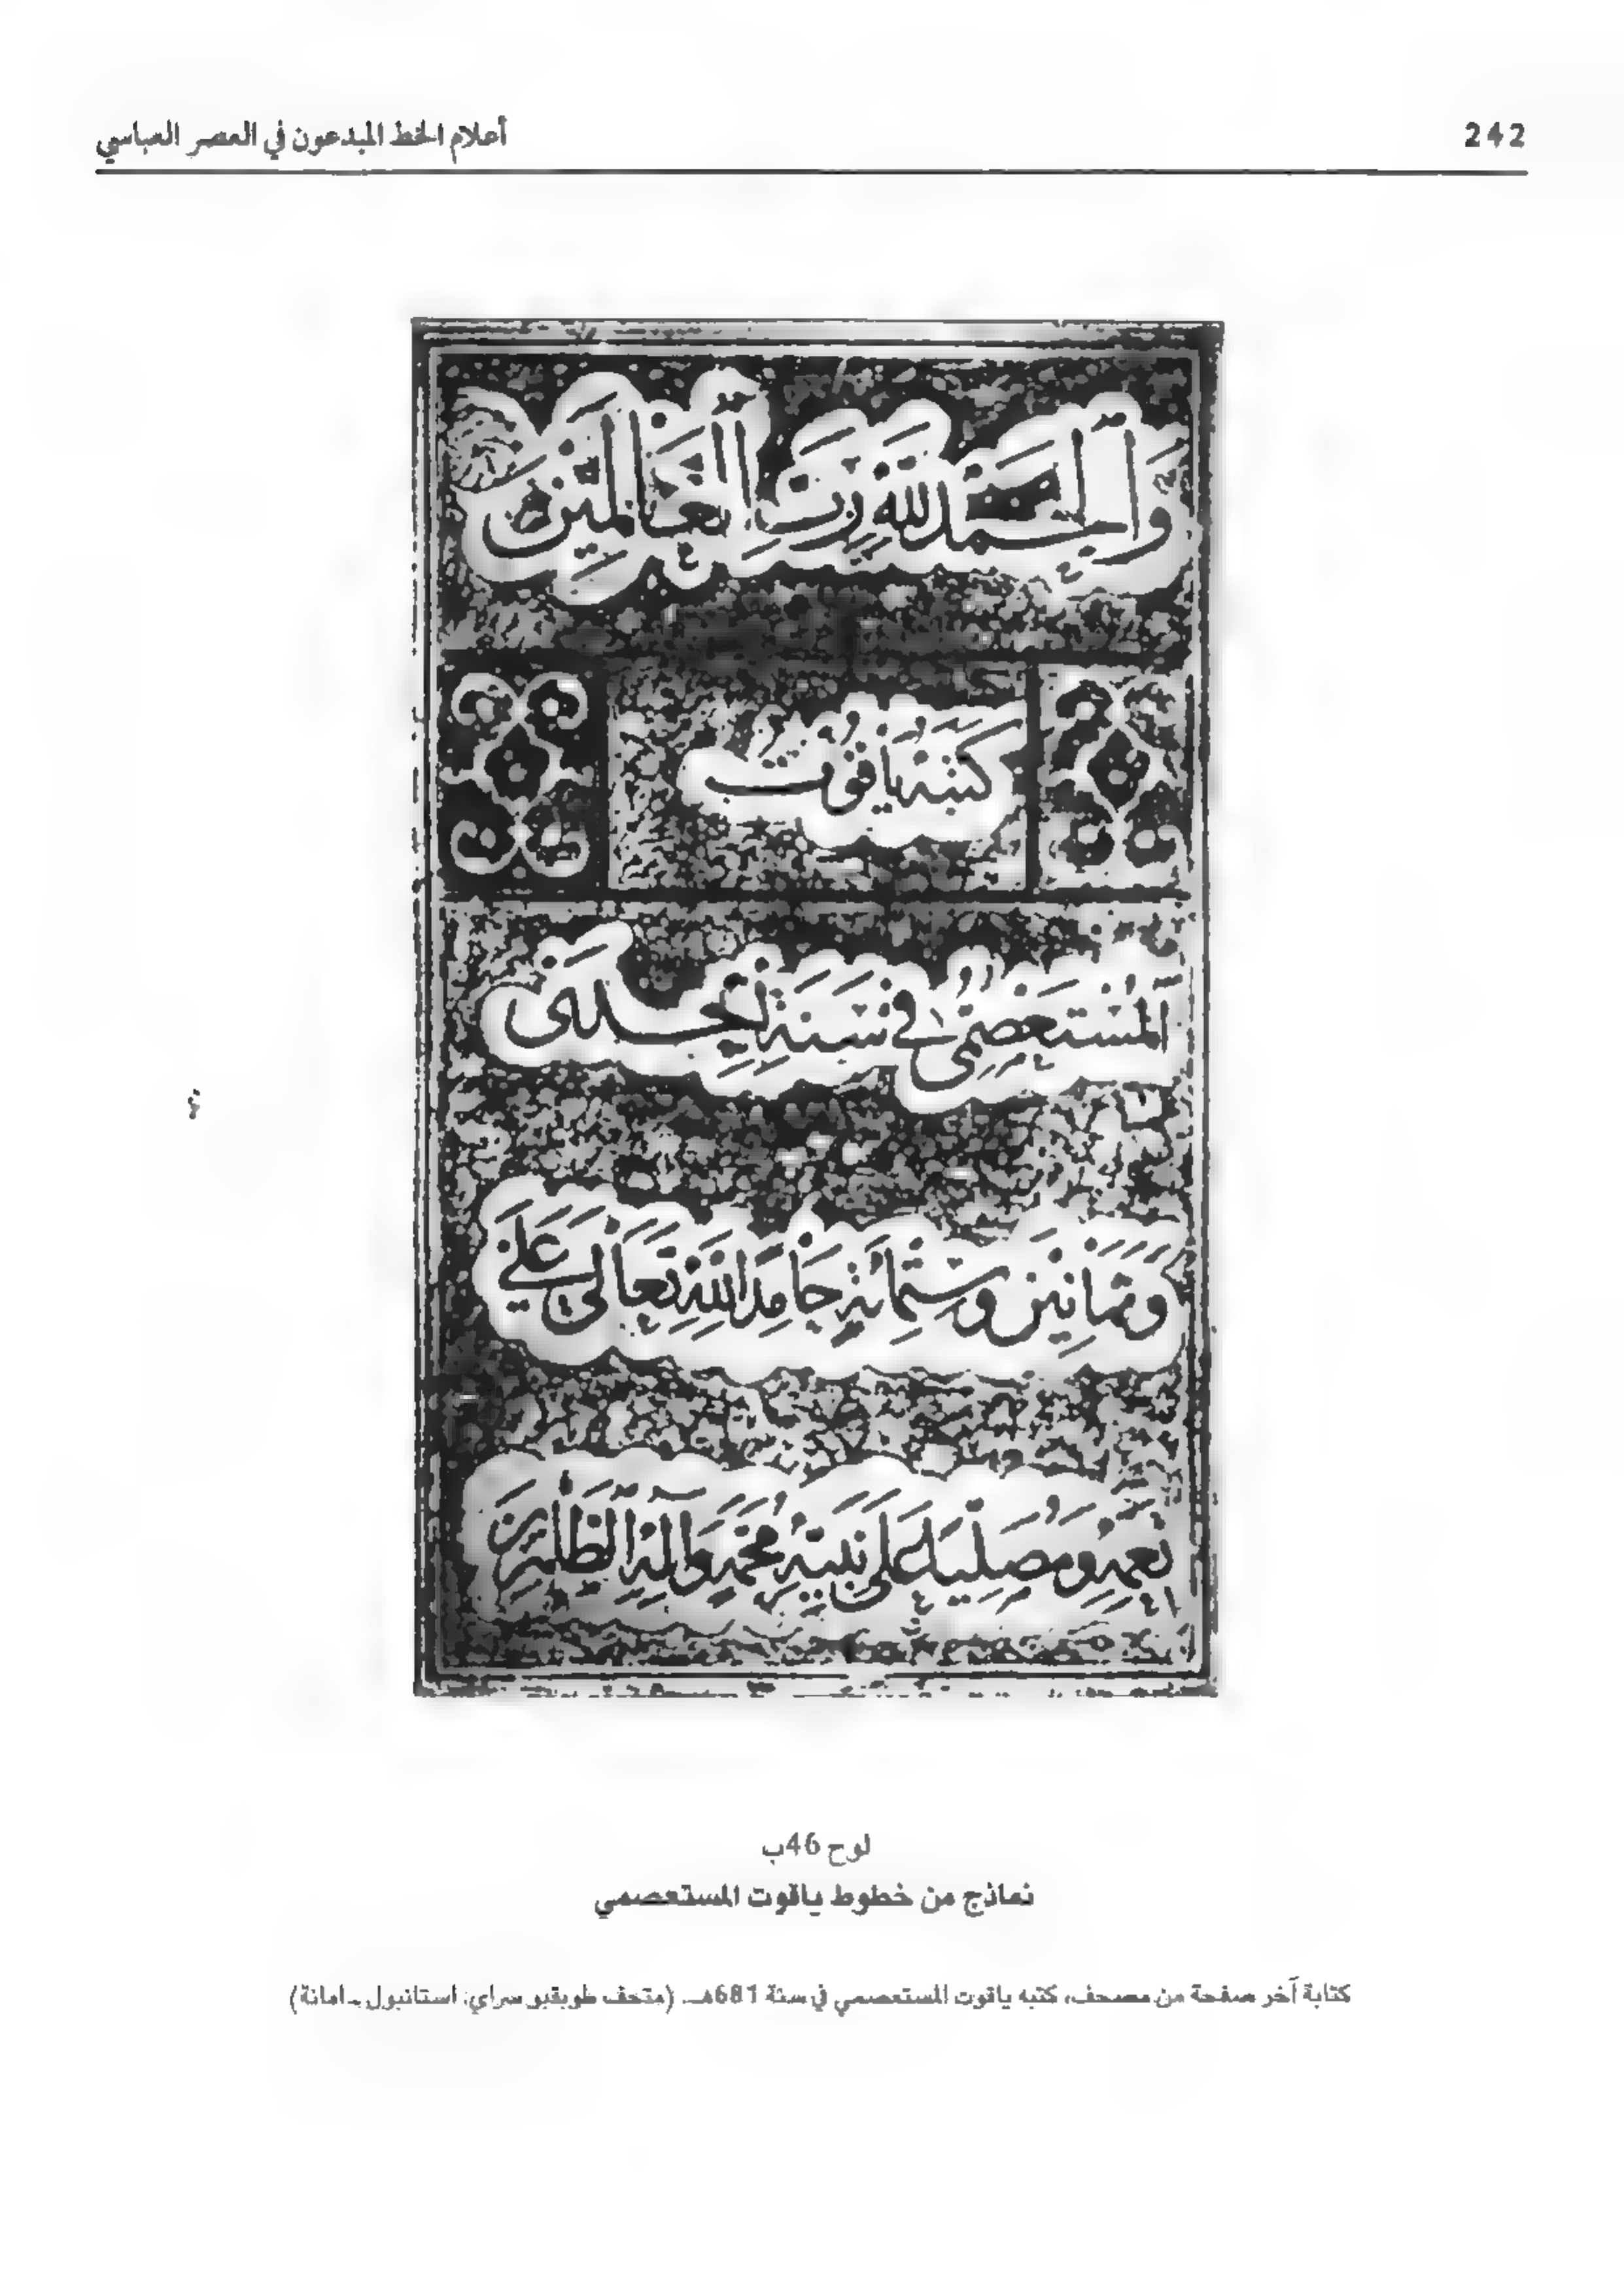 242
أعلام الخط المبدعون في العصر العباسي
وَالحَمْدُ لِلَّهِ رَبِّ العَالَمِينَ
كَتَبَهُ يَاقُوتُ
المُسْتَعْصِمِيُّ فِي سَنَةِ إِحْدَى
وَثَمَانِينَ وَسِتِّمِائَةٍ حَامِدًا لِلَّهِ تَعَالَى عَلَى
نِعَمِهِ وَمُصَلِّيًا عَلَى نَبِيِّهِ مُحَمَّدٍ وَآلِهِ الطَّاهِرِينَ
لوح 46ب
نماذج من خطوط ياقوت المستعصمي
كتابة آخر صفحة من مصحف، كتبه ياقوت المستعصمي في سنة 681هـ. (متحف طوبقبو سراي: استانبول ـ امانة)